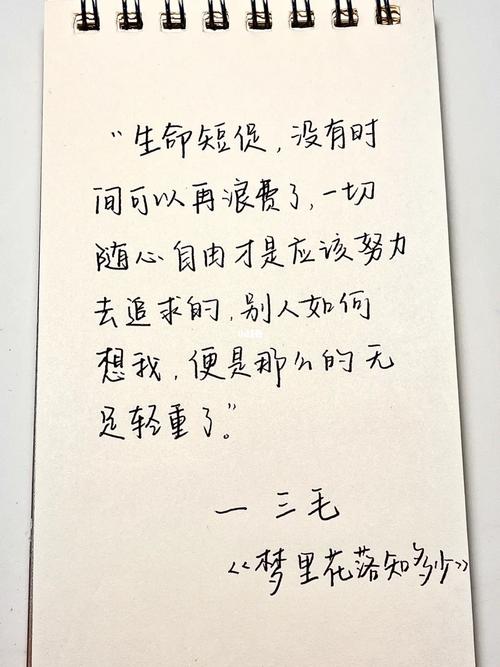 “生命短促，没有时
间可以再浪费了，一切
随心自由才是应该努力
去追求的，别人如何
想我，便是那么的无
足轻重了。”
— 三毛
《梦里花落知多少》